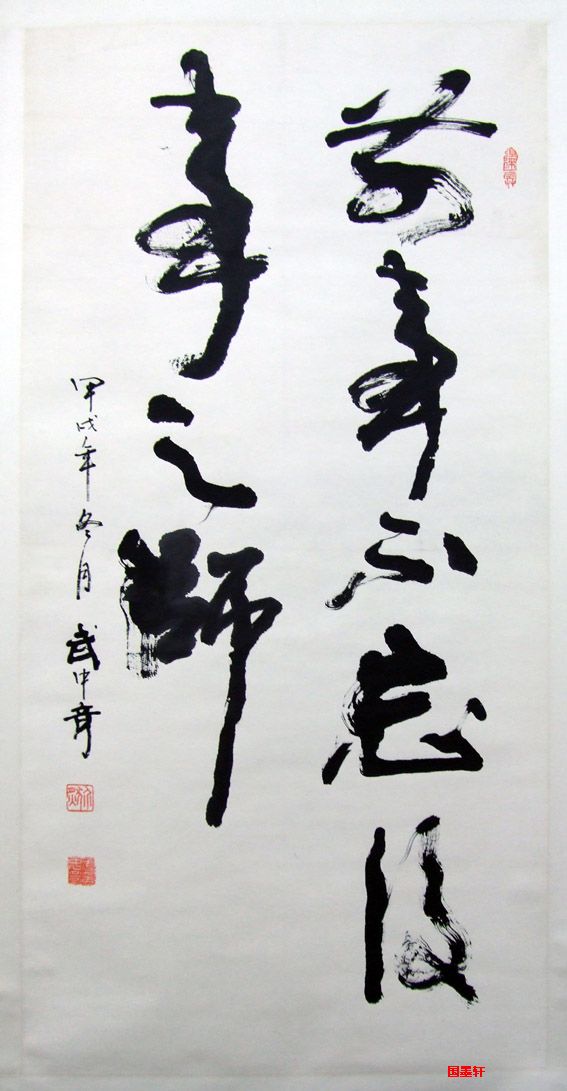 前事不忘后
事之師
甲戌年冬月 武中奇
国墨轩